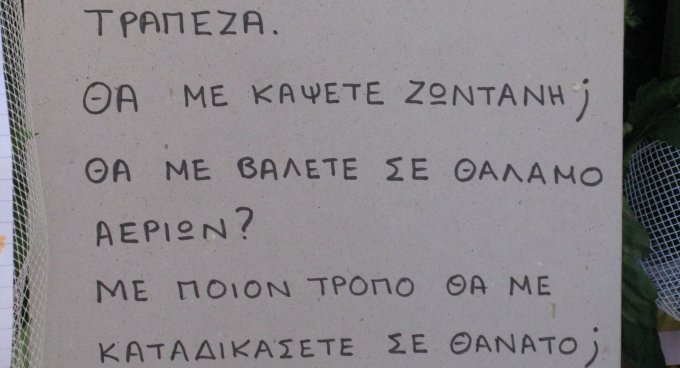 ΤΡΑΠΕΖΑ.
ΘΑ ΜΕ ΚΑΨΕΤΕ ΖΩΝΤΑΝΗ;
ΘΑ ΜΕ ΒΑΛΕΤΕ ΣΕ ΘΑΛΑΜΟ
ΑΕΡΙΩΝ?
ΜΕ ΠΟΙΟΝ ΤΡΟΠΟ ΘΑ ΜΕ
ΚΑΤΑΔΙΚΑΣΕΤΕ ΣΕ ΘΑΝΑΤΟ;